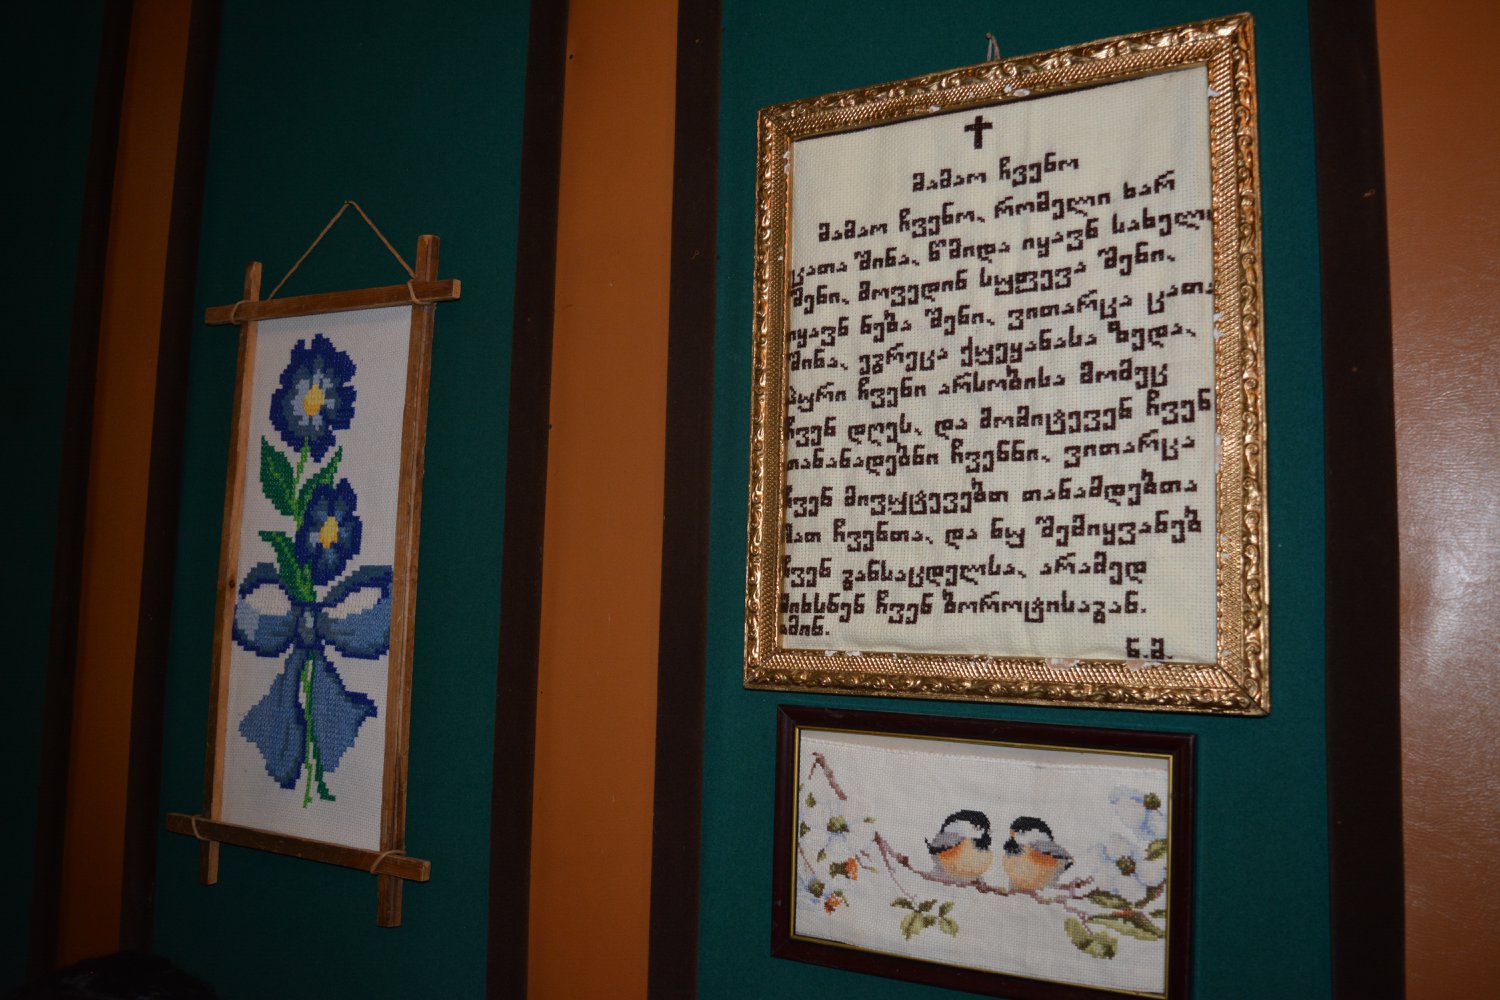 მამაო ჩვენო
მამაო ჩვენო, რომელი ხარ
ცათა შინა, წმიდა იყავნ სახელი
შენი, მოვედინ სუფევა შენი,
იყავნ ნება შენი, ვითარცა ცათა
შინა, ეგრეცა ქუეყანასა ზედა,
პური ჩვენი არსობისა მომეც
ჩვენ დღეს, და მომიტევენ ჩვენ
თანანადებნი ჩვენნი, ვითარცა
ჩვენ მივუტევებთ თანამდებთა
მათ ჩვენთა, და ნუ შემიყვანებ
ჩვენ განსაცდელსა, არამედ
მიხსნენ ჩვენ ბოროტისაგან.
ამინ.
ნ.მ.